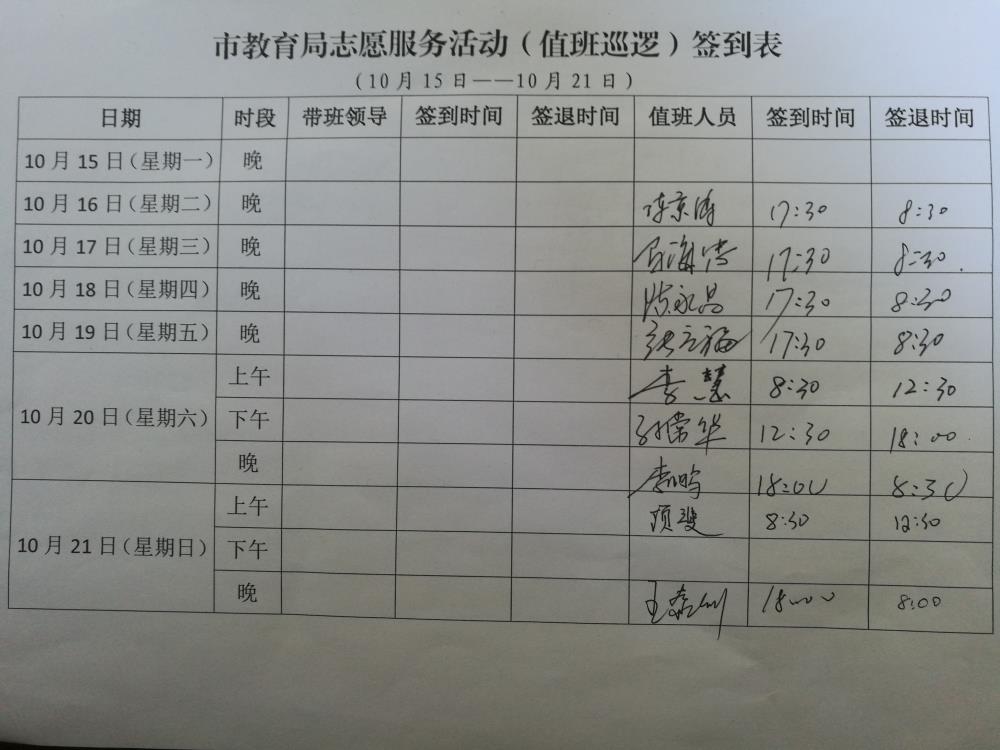 市教育局志愿服务活动（值班巡逻）签到表
（10月15日——10月21日）
日期 时段 带班领导 签到时间 签退时间 值班人员 签到时间 签退时间
10月15日（星期一） 晚
10月16日（星期二） 晚 17:30 8:30
10月17日（星期三） 晚 17:30 8:30
10月18日（星期四） 晚 陈永昌 17:30 8:30
10月19日（星期五） 晚 张立福 17:30 8:30
10月20日（星期六） 上午 李慧 8:30 12:30
下午 孙常华 12:30 18:00
晚 李鹏 18:00 8:30
10月21日（星期日） 上午 8:30 12:30
下午
晚 18:00 8:00